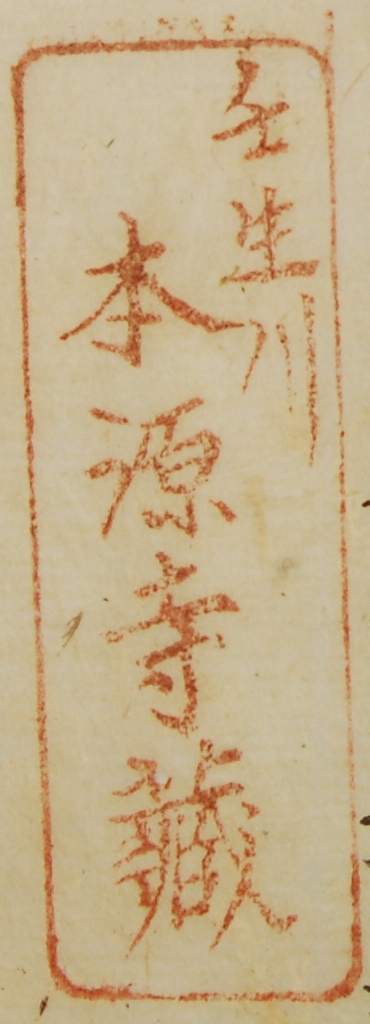 壬生川
本源寺藏